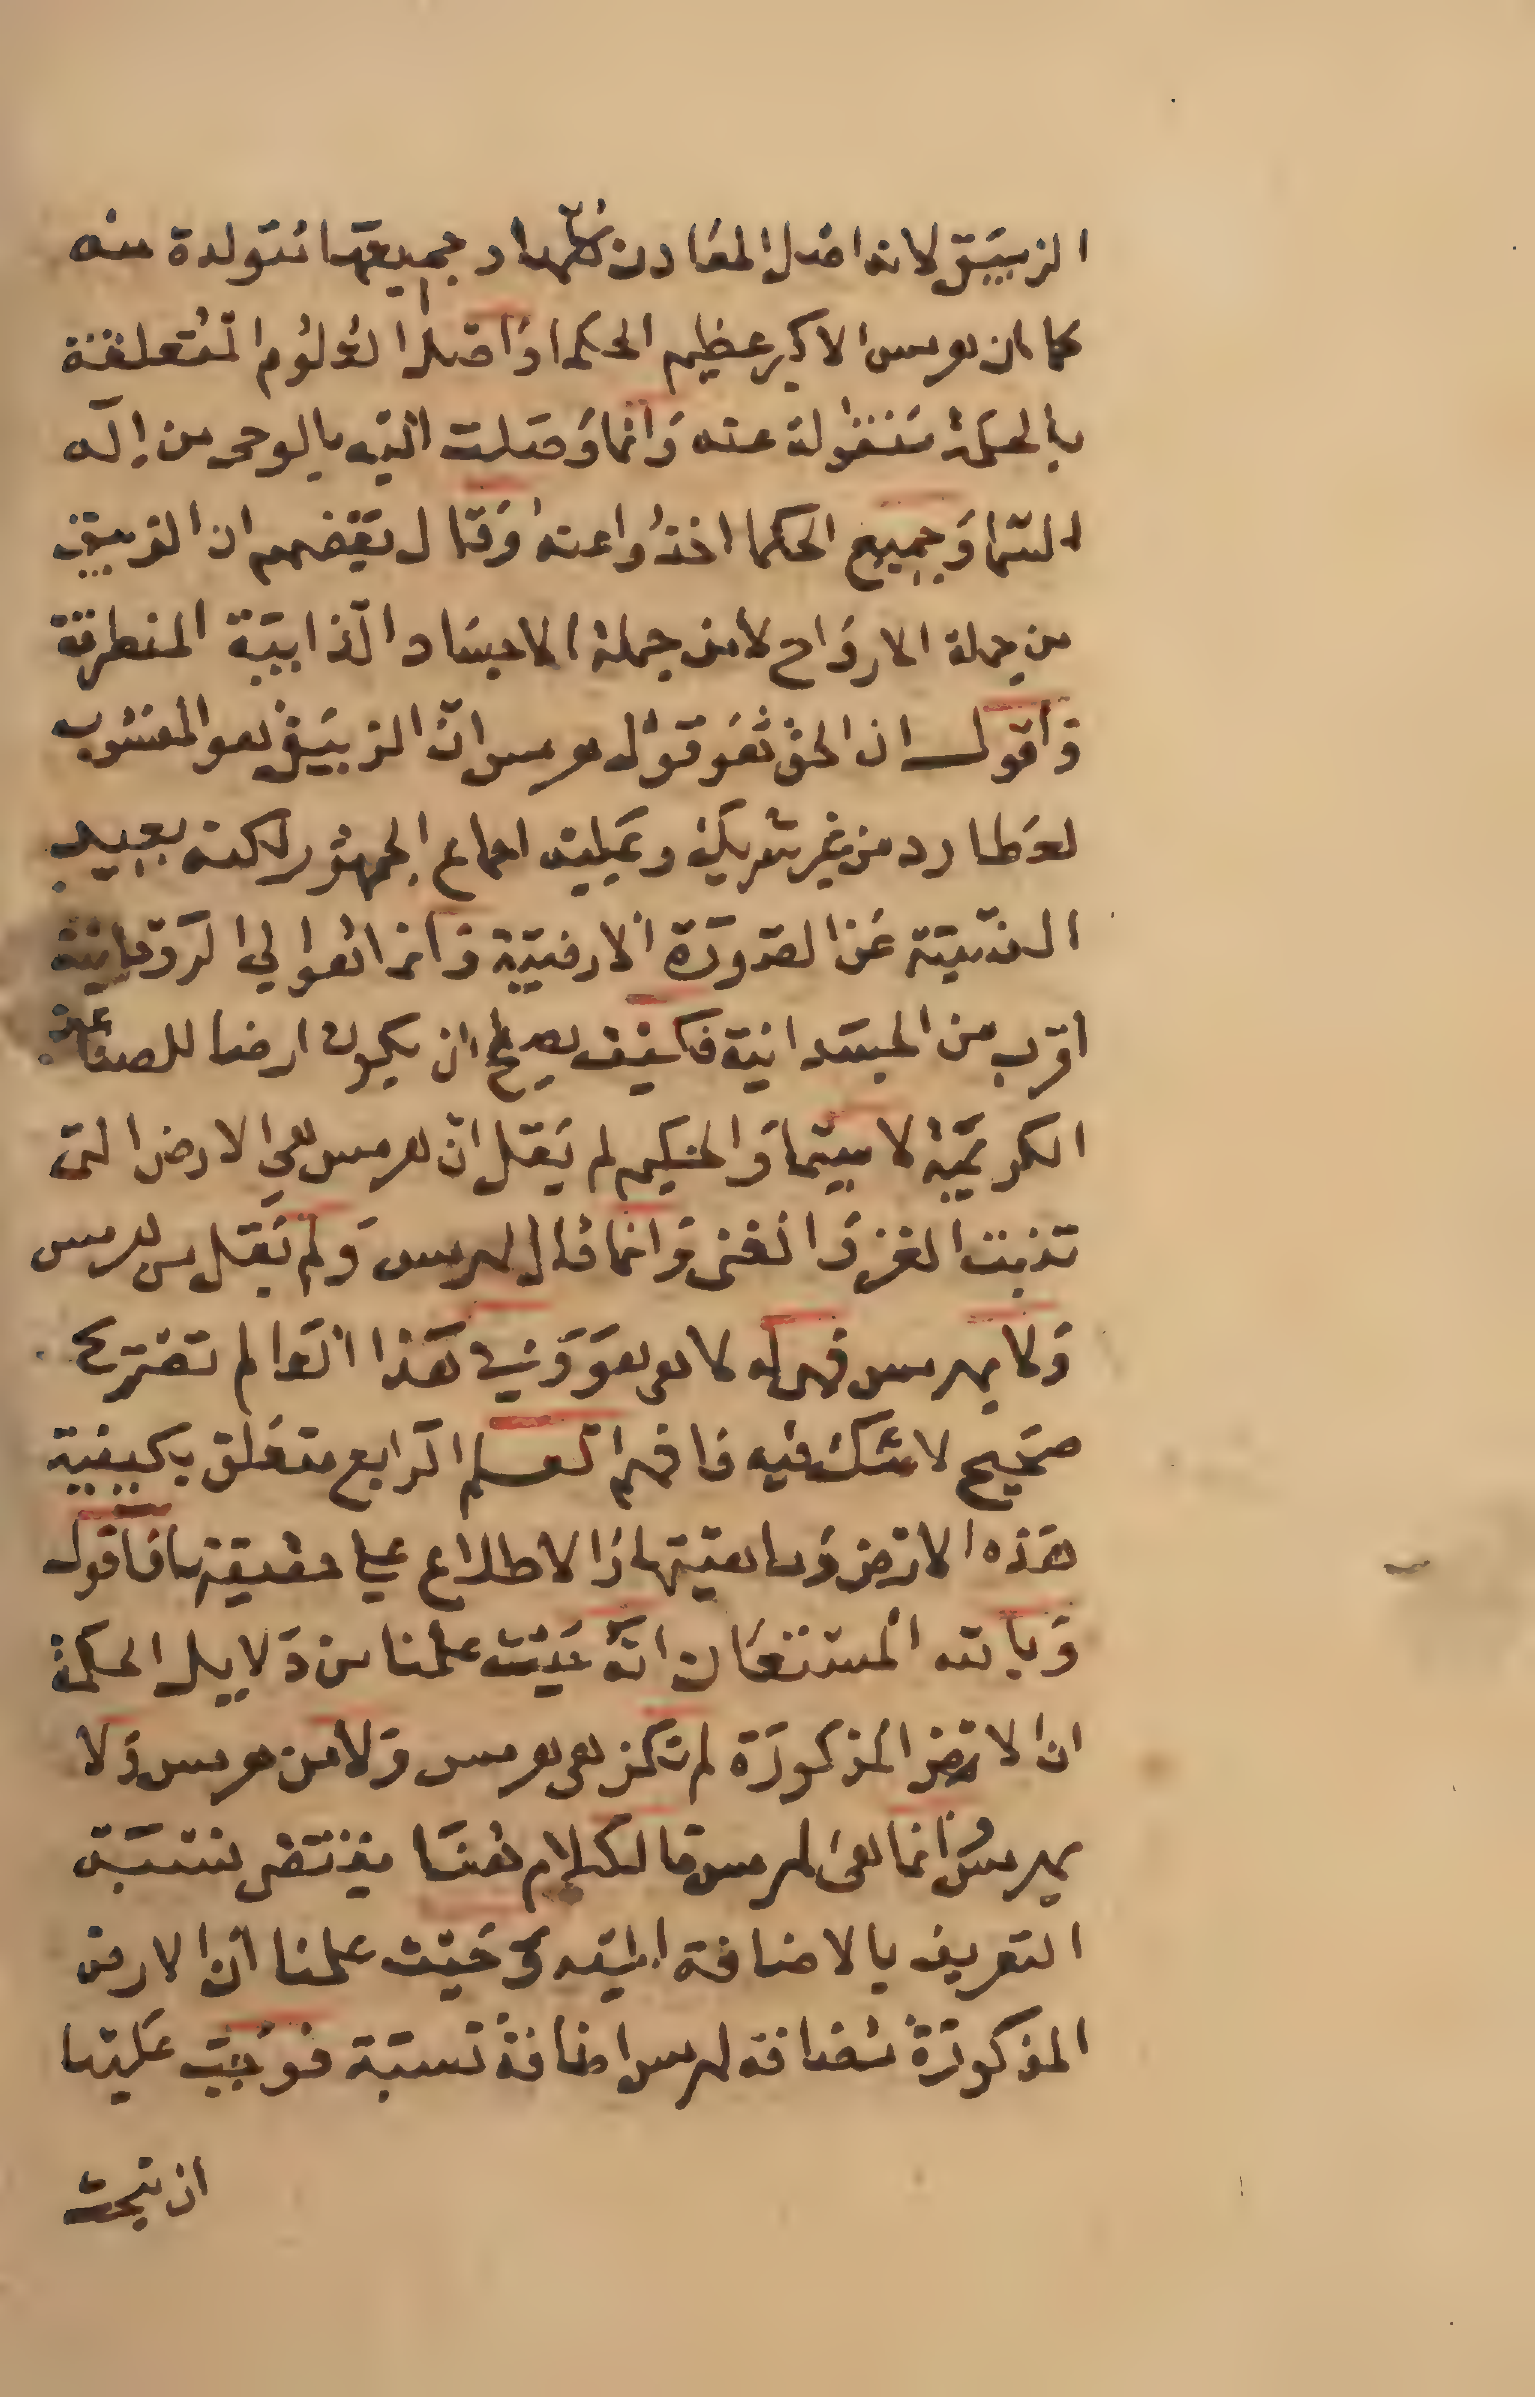 الزيبق لانه اصل المعادن كلها اذ جميعها متولدة منه
كما ان هرمس الاكبر عظيم الحكما اذ اصل العلوم المتعلقة
بالحكمة منقولة عنه وانما وصلت اليه بالوحي من إله
السما وجميع الحكما اخذوا عنه وقال بعضهم ان الزيبق
من جملة الارواح لا من جملة الاجساد الذايبة المنطرقة
واقول ان الحق هو قول هرمس انّ الزيبق هو المنسوب
لعطارد من غير شريك وعليه اجماع الجمهور لكنه بعيد
النسبة عن الصورة الارضية وانما هو الي الروحانية
اقرب من الجسدانية فكيف يصلح ان يكون ارضا للصفات
الكريمة لا سيما والحكيم لم يقل انّ هرمس هي الارض التي
تنبت العز والغنى وانما قال لهرمس ولم يقل من هرمس
ولا بهرمس فهي له لا هي هو وفي هذا العالم تفتريح
صحيح لا شك فيه فافهم العلم الرابع متعلق بكيفية
هذه الارض وماهيتها والاطلاع علي حقيقتها فاقول
وبالله المستعان انه حيث علمنا من دلايل الحكمة
ان الارض المذكورة لم تكن هي هرمس ولا من هرمس ولا
بهرمس وانما هي لهرمس فالكلام هنا يقتضى نسبة
التعريف بالاضافة اليه وحيث علمنا ان الارض
المذكورة مضافة لهرمس اضافة نسبة فوجب علينا
ان نبحث